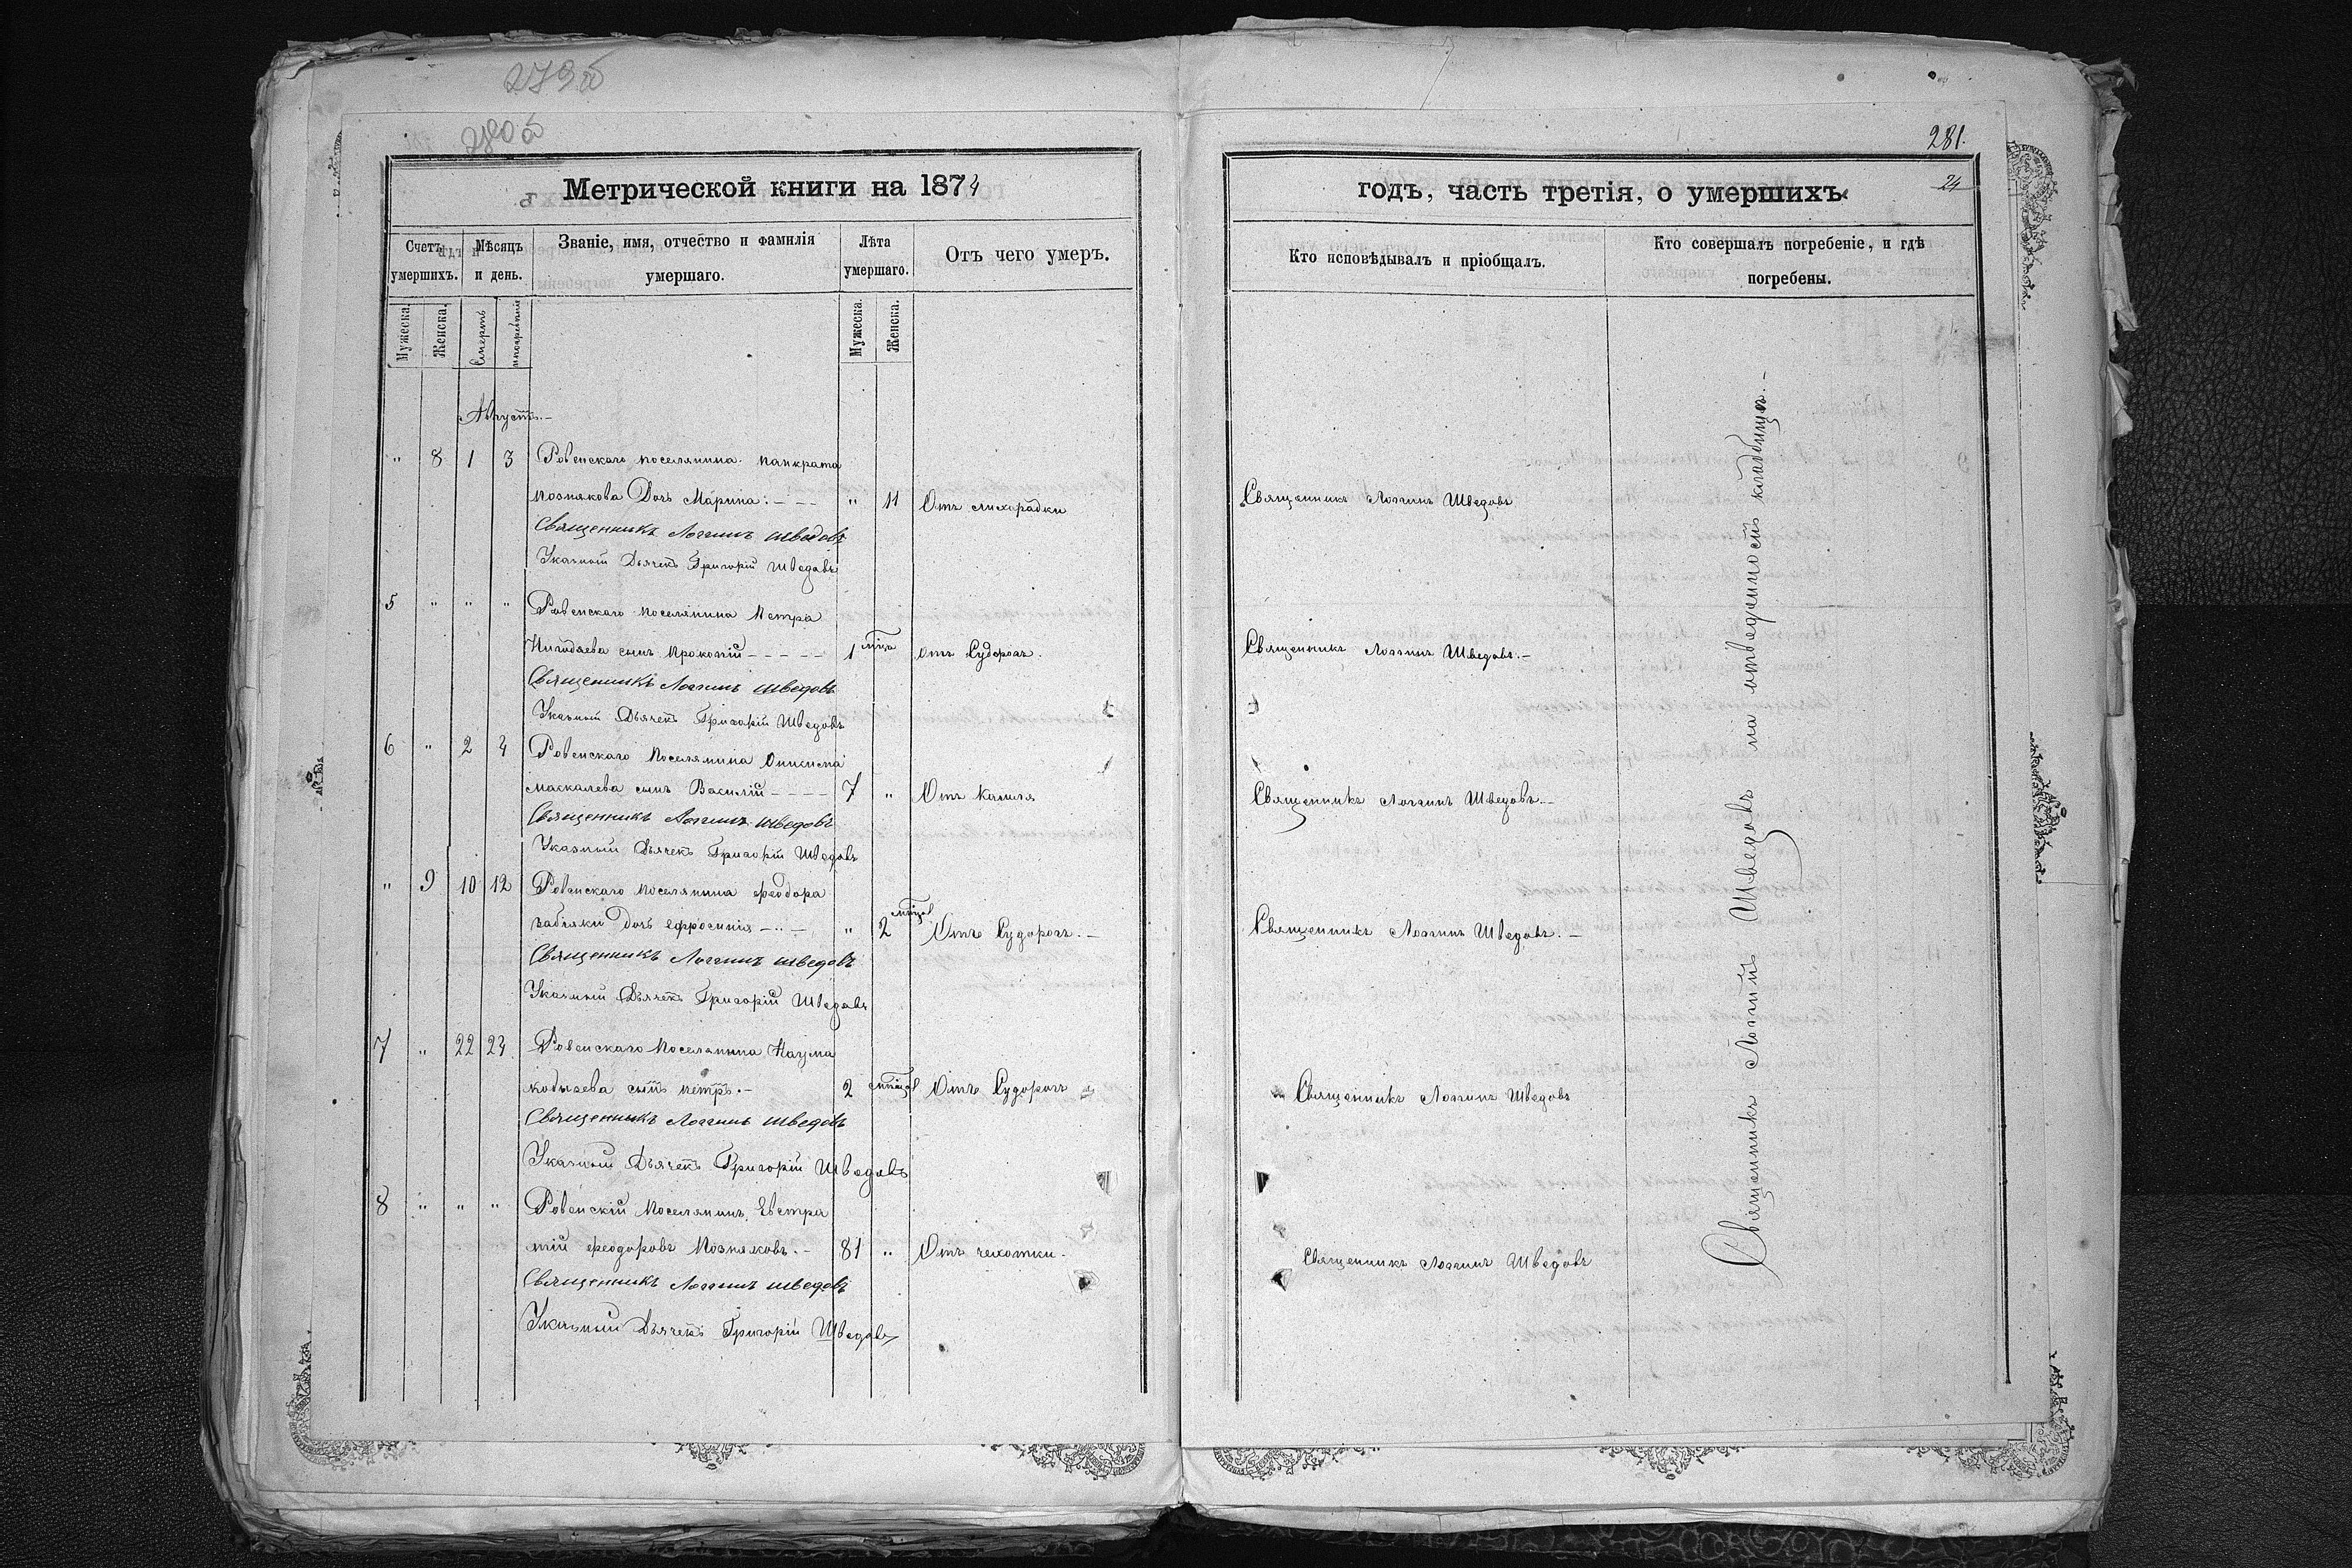 279об
280об
Метрической книги на 1874
Счетъ умершихъ.
Мѣсяцъ и день.
Званіе, имя, отчество и фамилія умершаго.
Лѣта умершаго.
Отъ чего умеръ.
Мужеска.
Женска.
Смерть
погребенія
Мужеска.
Женска.
Августъ.–
" 8 1 3 Ровенскаго поселянина Панкрата
Познякова Дочь Марина: – – – " 11 Отъ лихорадки
Священникъ Логгинъ Шведовъ
Указный Дьячекъ Григорій Шведовъ
5 " " " Ровенскаго поселянина Петра
сынъ Прокопій – – – – – 1 мѣца Отъ Судорогъ.
Священникъ Логгинъ Шведовъ
Указный Дьячекъ Григорій Шведовъ
6 " 2 4 Ровенскаго Поселянина
Маскалева сынъ Василій – – – – 7 " Отъ Кашля
Священникъ Логгинъ Шведовъ
Указный Дьячекъ Григорій Шведовъ
" 9 10 12 Ровенскаго Поселянина Феодора
Забіяки Дочь Ефросинія – " – " 2 мѣсцов Отъ Судорогъ. –
Священникъ Логгинъ Шведовъ
Указный Дьячекъ Григорій Шведовъ
7 " 22 24 Ровенскаго Поселянина Наума
Кобызева сынъ Петръ. – 2 мѣсцов Отъ Судорогъ
Священникъ Логгинъ Шведовъ
Указный Дьячекъ Григорій Шведовъ
8 " " " Ровенскій Поселянинъ Евстра
тій Феодоровъ Позняковъ. – 81 " Отъ чехотки.
Священникъ Логгинъ Шведовъ
Указный Дьячекъ Григорій Шведовъ
281.
24
годъ, часть третія, о умершихъ
Кто исповѣдывалъ и пріобщалъ.
Кто совершалъ погребеніе, и гдѣ погребены.
Священникъ Логгинъ Шведовъ
Священникъ Логгинъ Шведовъ. –
Священникъ Логгинъ Шведовъ. –
Священникъ Логгинъ Шведовъ. –
Священникъ Логгинъ Шведовъ
Священникъ Логгинъ Шведовъ
Священникъ Логгинъ Шведовъ на отведенномъ кладбищѣ. –